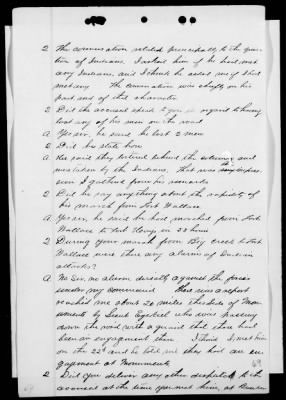 Q The conversation related principally to the ques-
tion of Indians. I asked him if he had met
any Indians, and I think he asked me if I had
met any. The conversation was chiefly on his
part and of that character.
Q Did the accused speak to you in regard to having
lost any of his men on the road
A Yes sir, he said he lost 2 men
Q Did he state how
A He said they loitered behind the column and
was taken by the Indians, That was the impres-
sion I gathered from his remarks
Q Did he say anything about the rapidity of
his march from Fort Wallace
A Yes sir, he said he had marched from Fort
Wallace to Fort Hays in 55 hours
Q During your march from Big Creek to Fort
Wallace were there any alarms of Indian
attacks?
A No Sir, no alarm directly against the forces
under my command. There was a report
reached me about 20 miles this side of Monu-
ments by Lieut who was passing
down the road with a guard that there had
been an engagement there. I think I met him
on the 22d and he told me they had an en-
gagement at Monuments
Q Did you deliver any other despatch to the
accused at the time you met him, at Downer
69